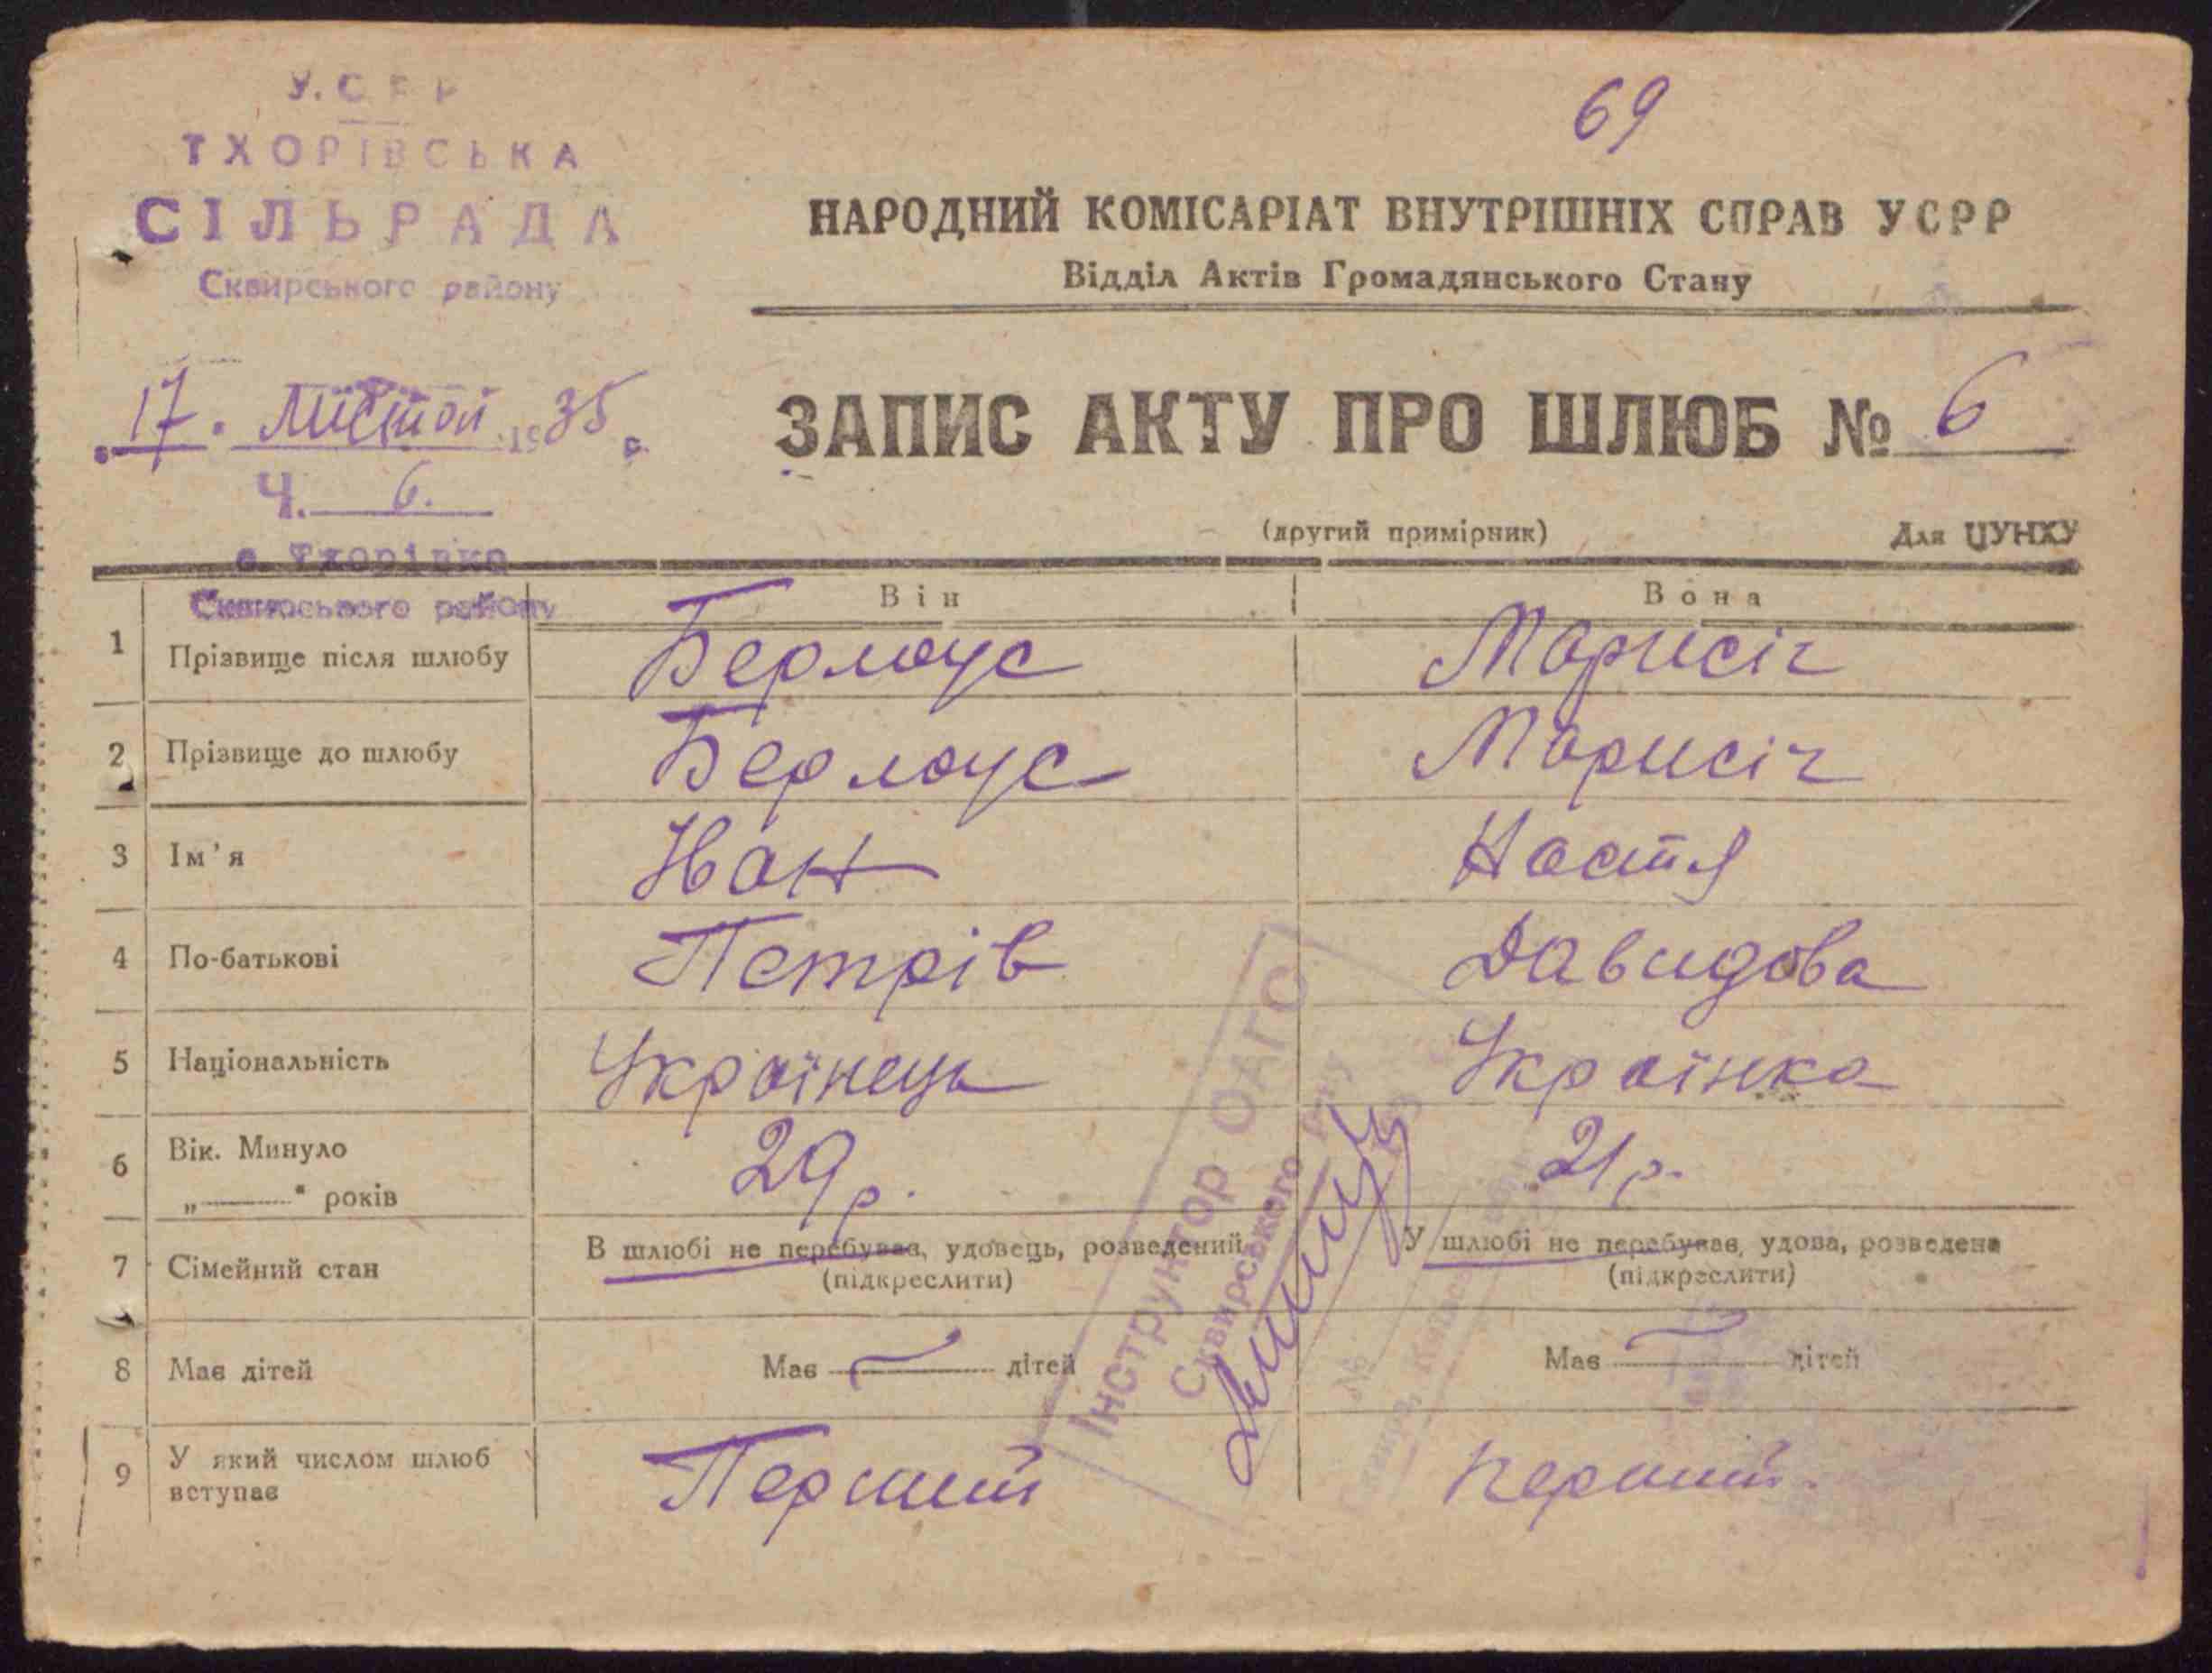 У.С.Р.Р
ТХОРІВСЬКА
СІЛЬРАДА
Сквирського району
69
НАРОДНИЙ КОМІСАРІАТ ВНУТРІШНІХ СПРАВ УСРР
Відділ Актів Громадянського Стану
17. листоп 1935 р.
ЗАПИС АКТУ ПРО ШЛЮБ № 6
Ч. 6.
(другий примірник) Для ЦУНХУ
с Тхорівка
Сквирського району
Він Вона
1 Прізвище після шлюбу Берлоус Марисіч
2 Прізвище до шлюбу Берлоус Марисіч
3 Ім'я Іван Настя
4 По-батькові Петрів Давидова
5 Національність Українець Українка
6 Вік. Минуло 29 р. 21 р.
„———“ років
7 Сімейний стан В шлюбі не перебував, удовець, розведений У шлюбі не перебував, удова, розведена
(підкреслити) (підкреслити)
8 Має дітей Має — дітей Має — дітей
9 У який числом шлюб Перший перший.
вступає
Інструктор ОАГС
Сквирського р-ну